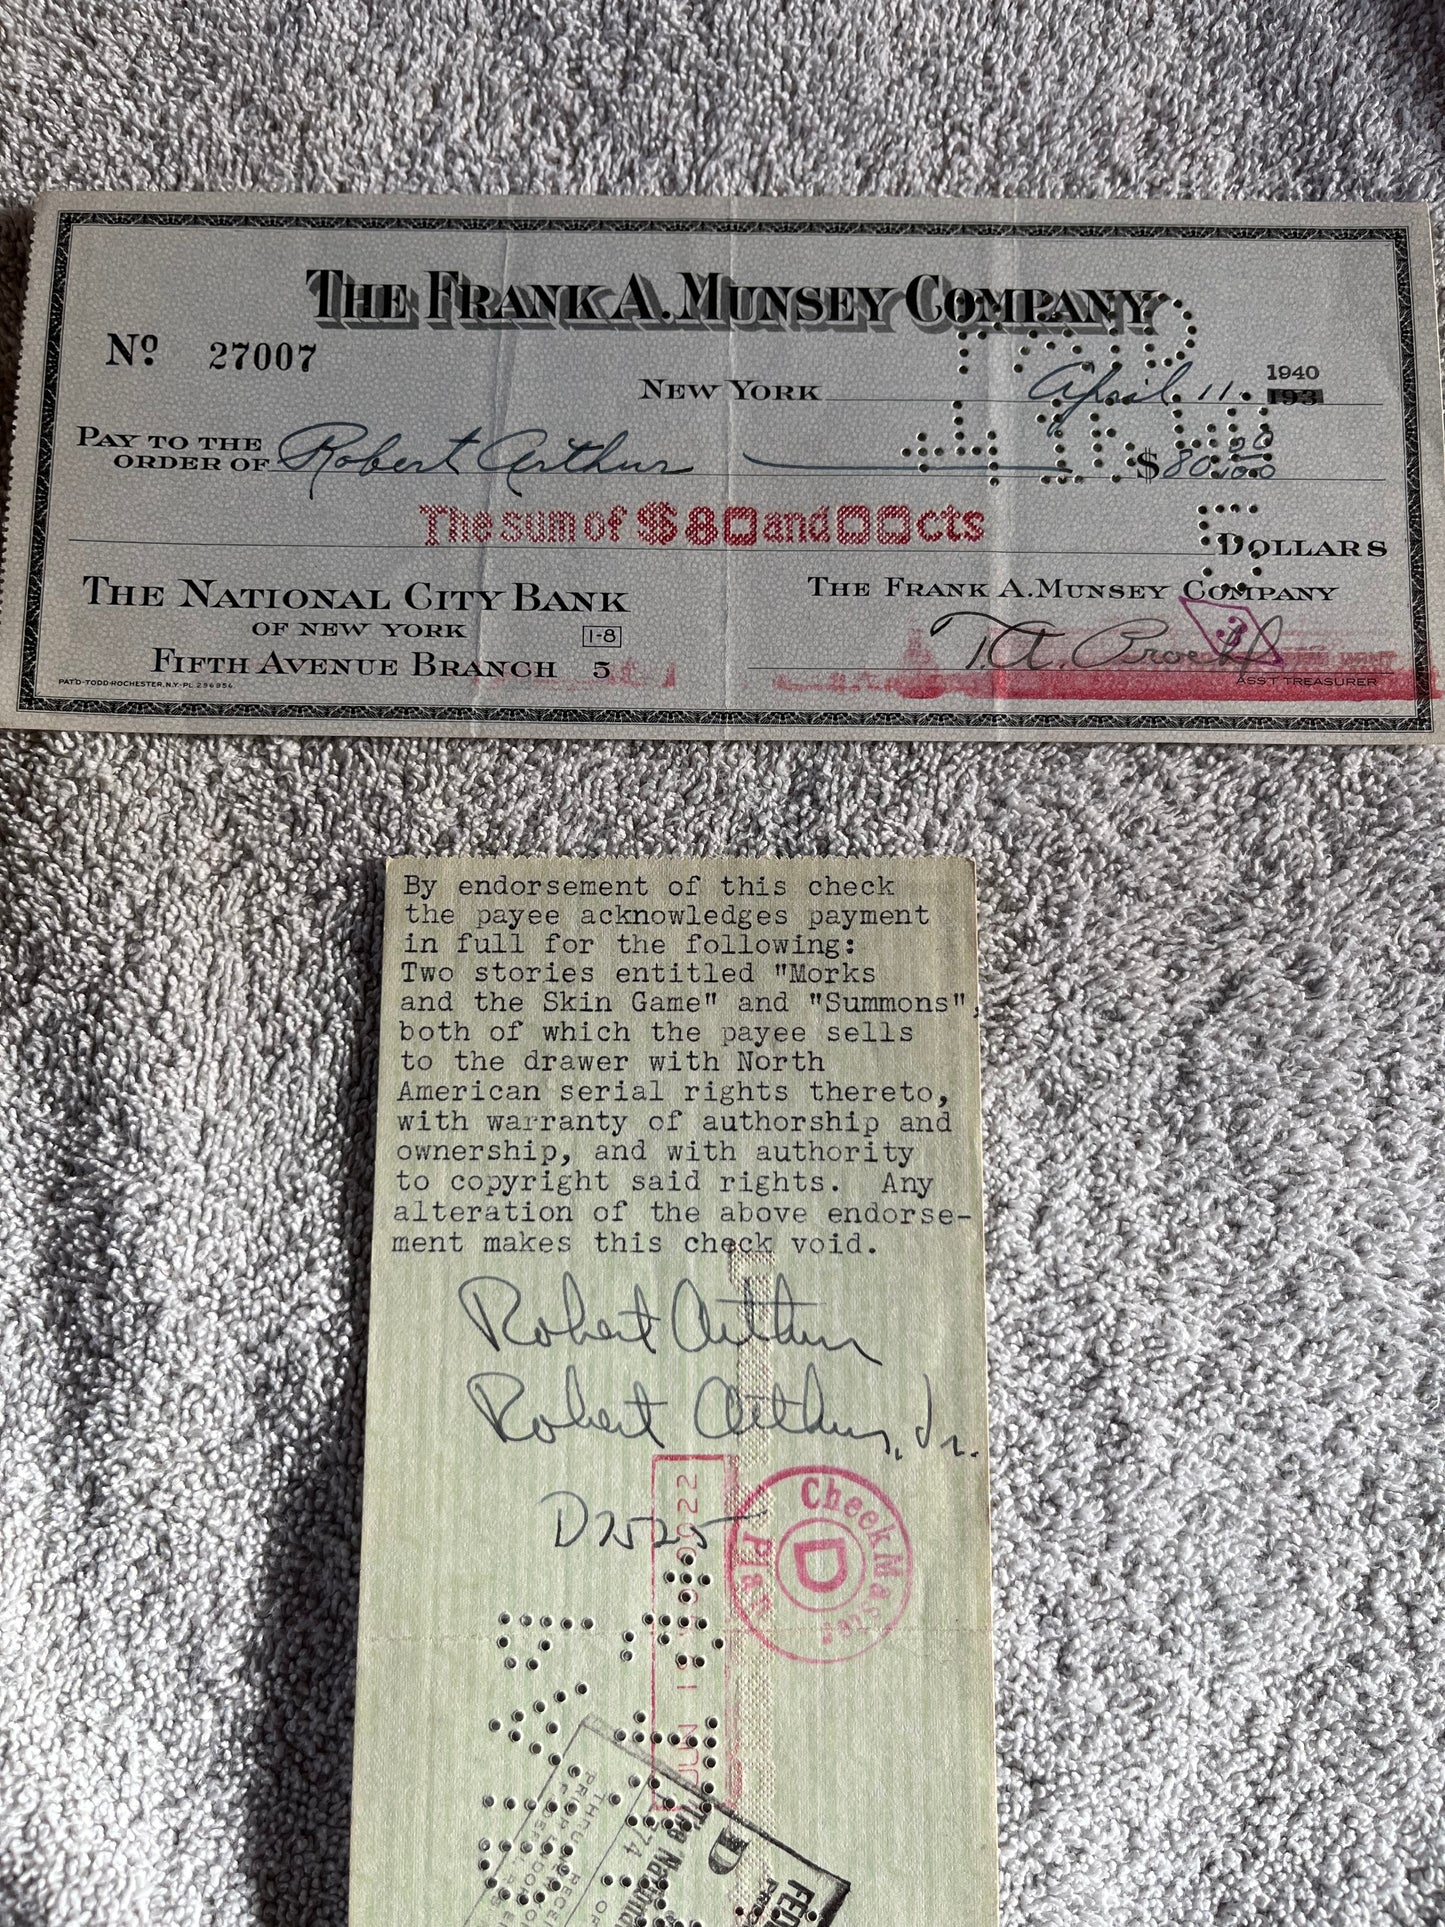 THE FRANK A. MUNSEY COMPANY
PAID
No. 27007
NEW YORK April 11. 1940
193
4.16.40
PAY TO THE
ORDER OF Robert Arthur $80 00/100
The sum of $80 and 00 cts
DOLLARS
THE NATIONAL CITY BANK
OF NEW YORK 1-8
FIFTH AVENUE BRANCH 5
PAT'D-TODD-ROCHESTER, N.Y.-PL 296956
THE FRANK A. MUNSEY COMPANY
3
ASST TREASURER
By endorsement of this check
the payee acknowledges payment
in full for the following:
Two stories entitled "Morks
and the Skin Game" and "Summons",
both of which the payee sells
to the drawer with North
American serial rights thereto,
with warranty of authorship and
ownership, and with authority
to copyright said rights. Any
alteration of the above endorse-
ment makes this check void.
Robert Arthur
Robert Arthur, Jr.
D2525
Check Master
Plan
D